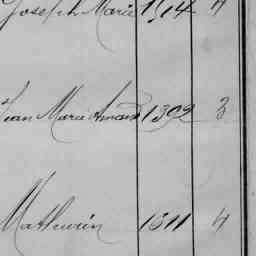 Joseph Marie 1514 4
Jean Marie Amand 1392 3
Mathurin 1511 4